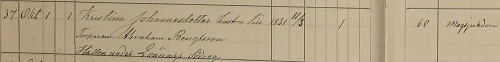 37 Okt 1 1 Kristina Johannesdotter hustru till 1831 11/3 1 60 Magsjukdom
Torparen Abraham Bengtsson
Hatten under Södreg